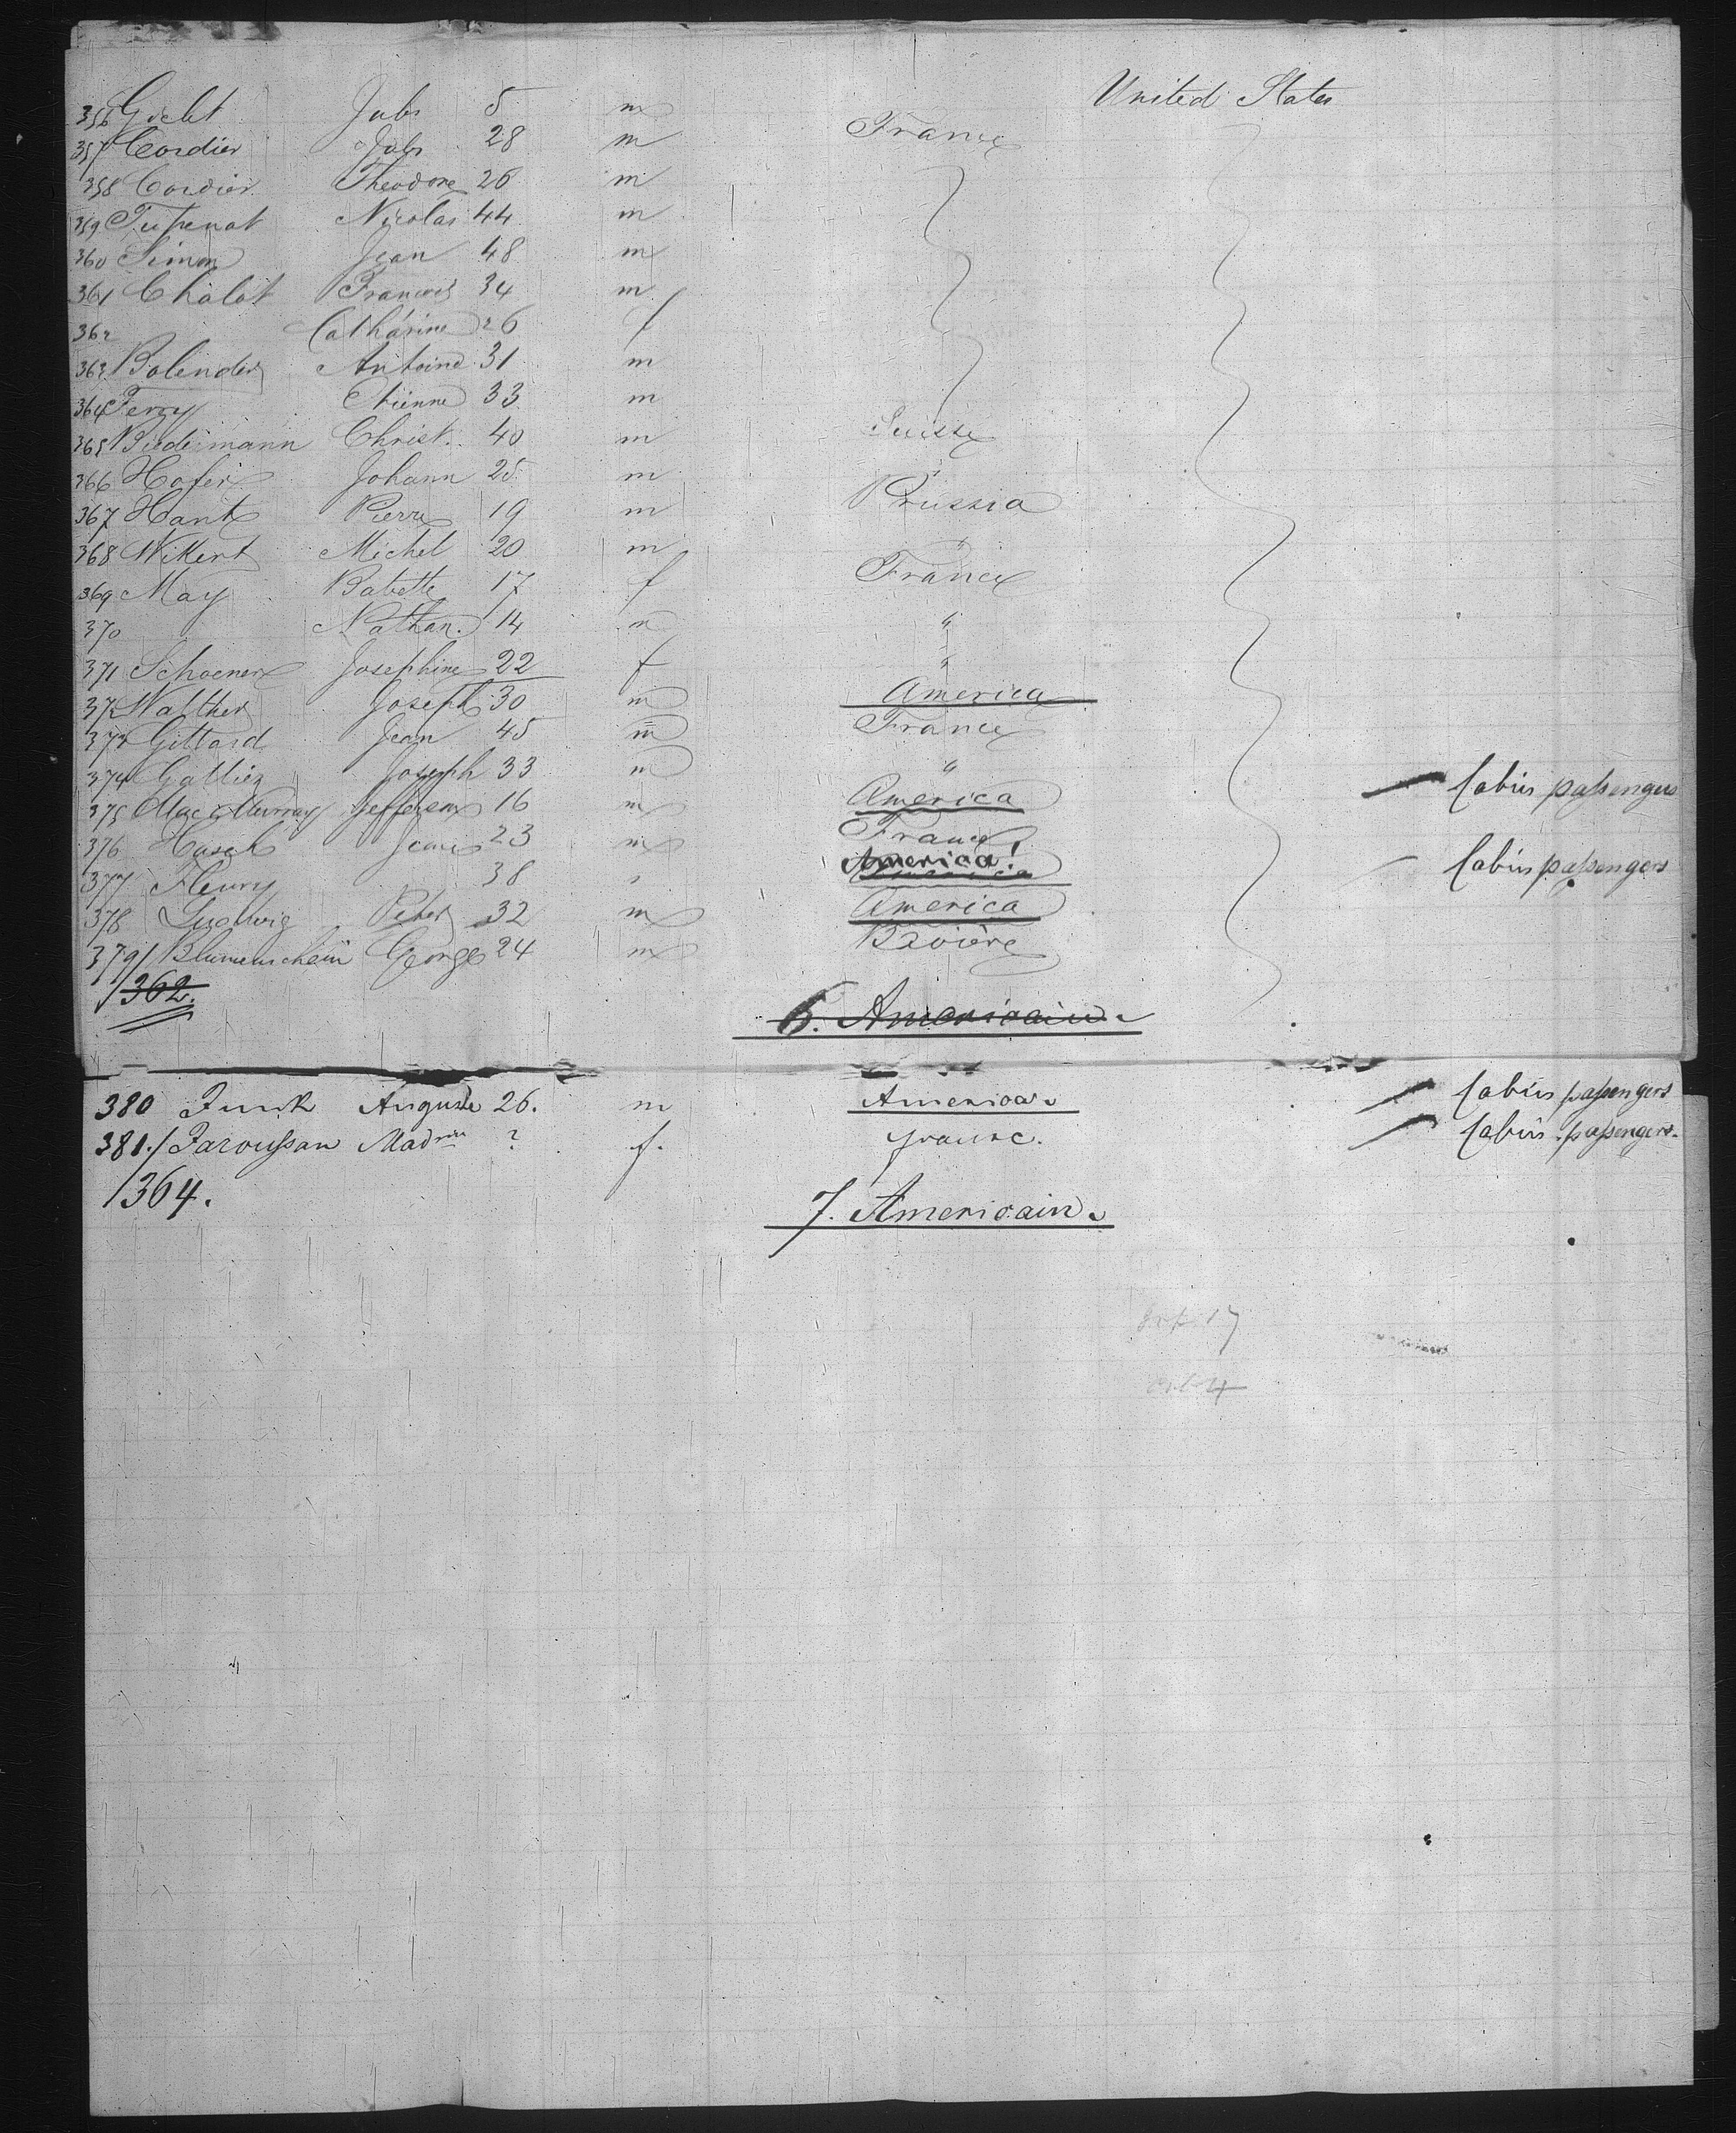 United States
356 Gicht Jules 5 m
357 Cordier Jules 28 m France
358 Cordier Theodore 26 m
359 Tupenat Nicolas 44 m
360 Simon Jean 48 m
361 Chalot Francois 34 m
362 Catharine 26 f
363 Bolender Antoine 31 m
364 Ferry Etienne 33 m
365 Biedermann Christ. 40 m Suisse
366 Hofer Johann 25 m "
367 Hant Pierre 19 m Prussia
368 Wikert Michel 20 m "
369 May Babette 17 f France
370 Nathan. 14 m "
371 Schoener Josephine 22 f "
372 Walther Joseph 30 m America
373 Gittard Jean 45 m France
374 Galliez Joseph 33 m "
375 Mac Murray Jefferson 16 m America Cabin passengers
376 Hasch 23 m France
377 Fleury 38 America. Cabin passengers
378 Ludwig Peter 32 m America
379 / Blumenschein George 24 m Bavière
/ 362.
6. Americain
380 Funk Auguste 26. m America Cabin passengers
381. / Faroussan Madme ? f. France. Cabin passengers.
/ 364.
7. Americain
17
4